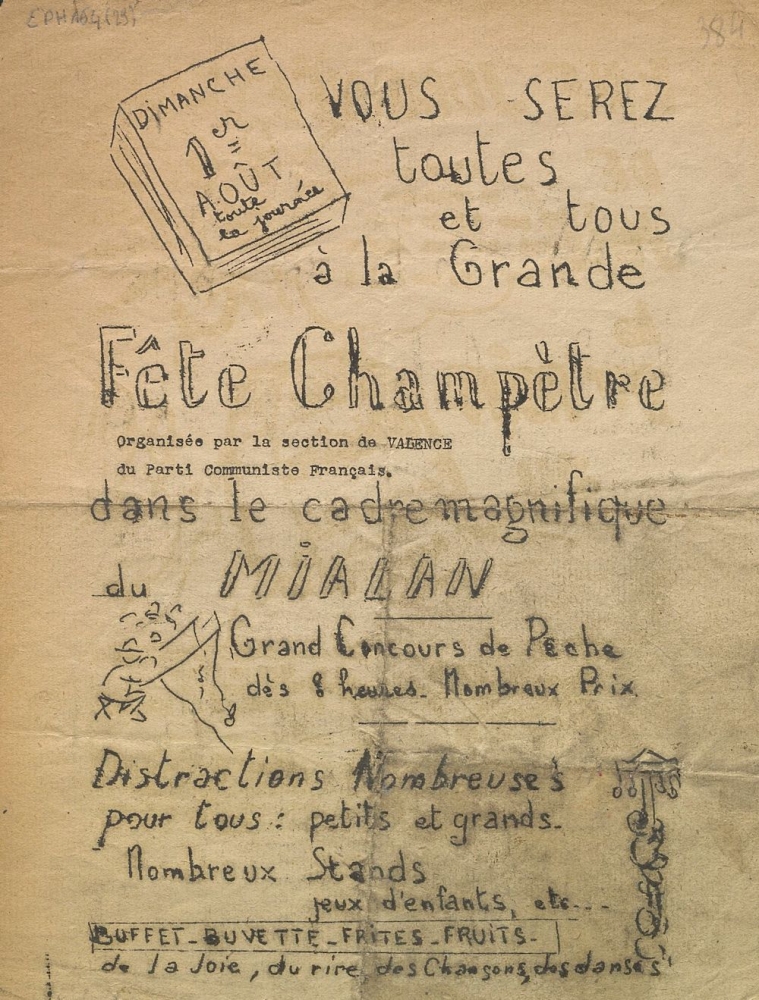 EPH104(29)
384
DIMANCHE
1er
AOÛT
toute
la journée
VOUS SEREZ
toutes
et tous
à la Grande
Fête Champètre
Organisée par la section de VALENCE
du Parti Communiste Français.
dans le cadre magnifique
du MiALAN
Grand Concours de Pêche
dès 8 heures. Nombreux Prix.
Distractions Nombreuses
pour tous : petits et grands.
Nombreux Stands
jeux d'enfants, etc...
BUFFET-BUVETTE-FRITES-FRUITS-
de la Joie, du rire, des Chansons, des danses